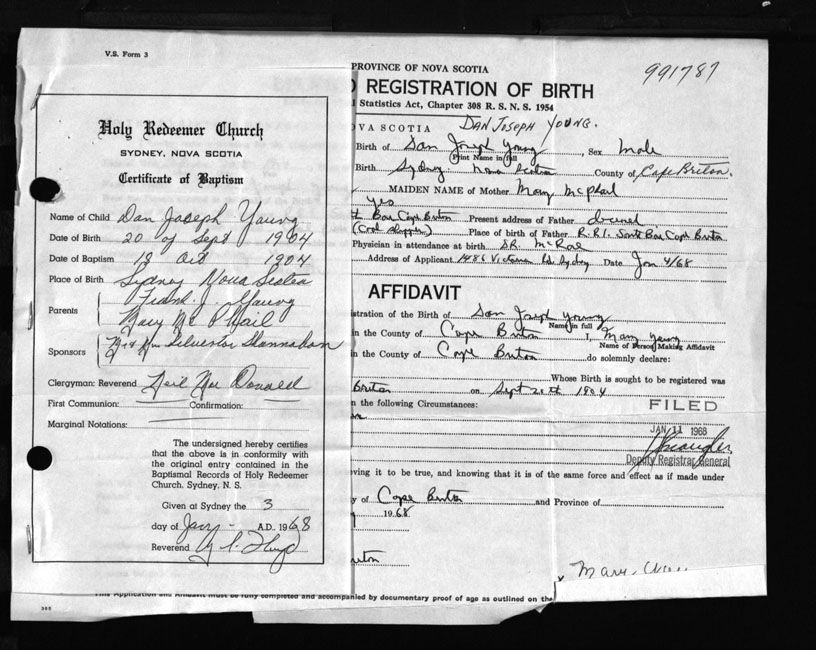 V.S. Form 3
Holy Redeemer Church
SYDNEY, NOVA SCOTIA
Certificate of Baptism
Name of Child Dan Joseph Young
Date of Birth 20 of Sept 1904
Date of Baptism 18 Oct 1904
Place of Birth Sydney Nova Scotia
Parents Frank J. Young
Mary Mc Phail
Sponsors Mr & Mrs Silvester Hannahan
Clergyman: Reverend Neil Mac Donald
First Communion: Confirmation:
Marginal Notations:
The undersigned hereby certifies
that the above is in conformity with
the original entry contained in the
Baptismal Records of Holy Redeemer
Church. Sydney, N. S.
Given at Sydney the 3
day of Jany - A.D. 1968
Reverend
305
PROVINCE OF NOVA SCOTIA
991787
REGISTRATION OF BIRTH
Statistics Act, Chapter 308 R. S. N. S. 1954
OVA SCOTIA DAN JOSEPH YOUNG.
Birth of Dan Joseph Young, Sex Male
Print Name in full
Birth Sydney Nova Scotia County of Cape Breton.
MAIDEN NAME of Mother Mary McPhail
yes
Boa Cape Breton Present address of Father
Place of birth of Father R.R.1. South Bar Cape Breton
Physician in attendance at birth DR. McRae
Address of Applicant 1486 Victoria Rd. Sydney Date Jan 4/68
AFFIDAVIT
istration of the Birth of Dan Joseph Young
Name in full
in the County of Cape Breton I, Mary Young
Name of Person Making Affidavit
in the County of Cape Breton do solemnly declare:
Whose Birth is sought to be registered was
Breton on Sept 20th 1904
n the following Circumstances:
FILED
JAN 11 1968
Deputy Registrar General
ving it to be true, and knowing that it is of the same force and effect as if made under
y of Cape Breton and Province of
1968
Breton
Mary
This Application and Affidavit must be fully completed and accompanied by documentary proof of age as outlined on the